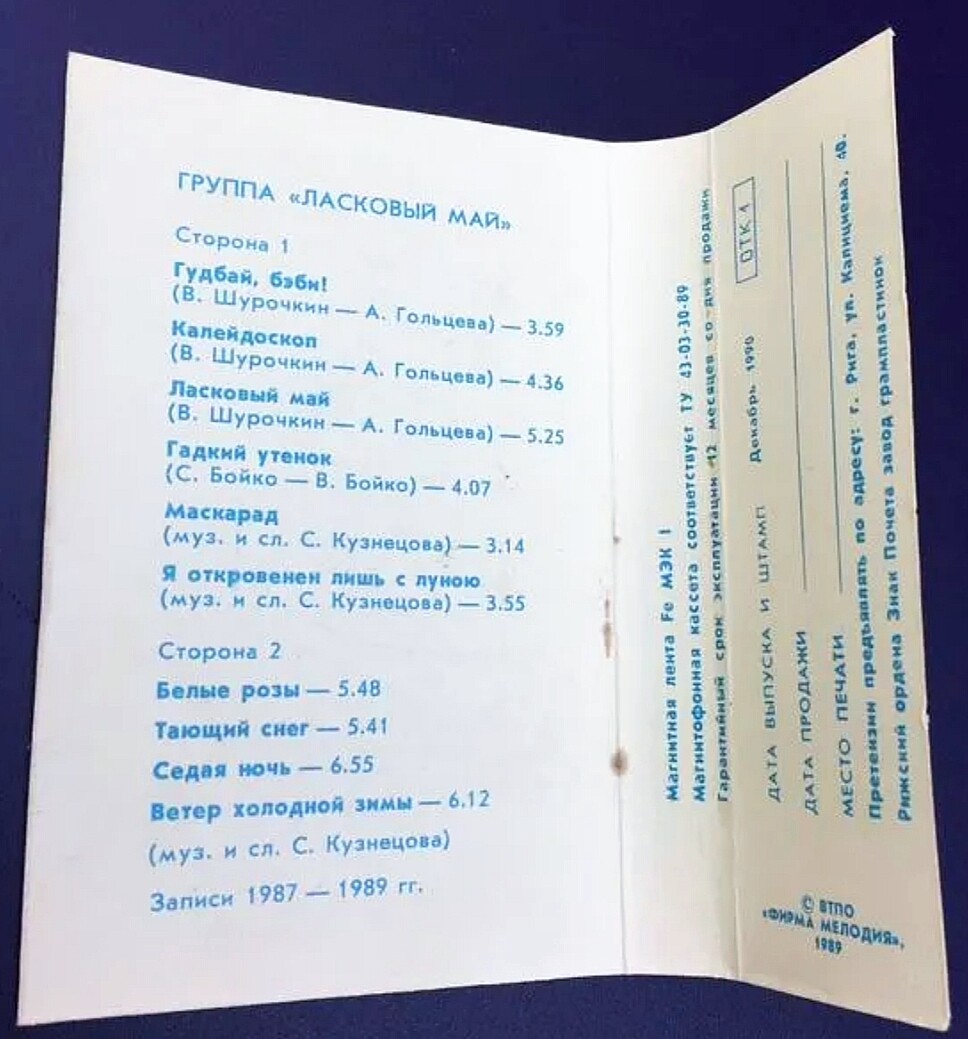 ГРУППА «ЛАСКОВЫЙ МАЙ»
Сторона 1
Гудбай, бэби!
(В. Шурочкин — А. Гольцева) — 3.59
Калейдоскоп
(В. Шурочкин — А. Гольцева) — 4.36
Ласковый май
(В. Шурочкин — А. Гольцева) — 5.25
Гадкий утенок
(С. Бойко — В. Бойко) — 4.07
Маскарад
(муз. и сл. С. Кузнецова) — 3.14
Я откровенен лишь с луною
(муз. и сл. С. Кузнецова) — 3.55
Сторона 2
Белые розы — 5.48
Тающий снег — 5.41
Седая ночь — 6.55
Ветер холодной зимы — 6.12
(муз. и сл. С. Кузнецова)
Записи 1987 — 1989 гг.
Магнитная лента Fe МЭК I
Магнитофонная кассета соответствует ТУ 43-03-30-89
Гарантийный срок эксплуатации 12 месяцев со дня продажи
ОТК 1
ДАТА ВЫПУСКА И ШТАМП Декабрь 1990
ДАТА ПРОДАЖИ
МЕСТО ПЕЧАТИ
Претензии предъявлять по адресу: г. Рига, ул. Калнциема, 40.
Рижский ордена Знак Почета завод грампластинок
© ВТПО
«ФИРМА МЕЛОДИЯ»,
1989